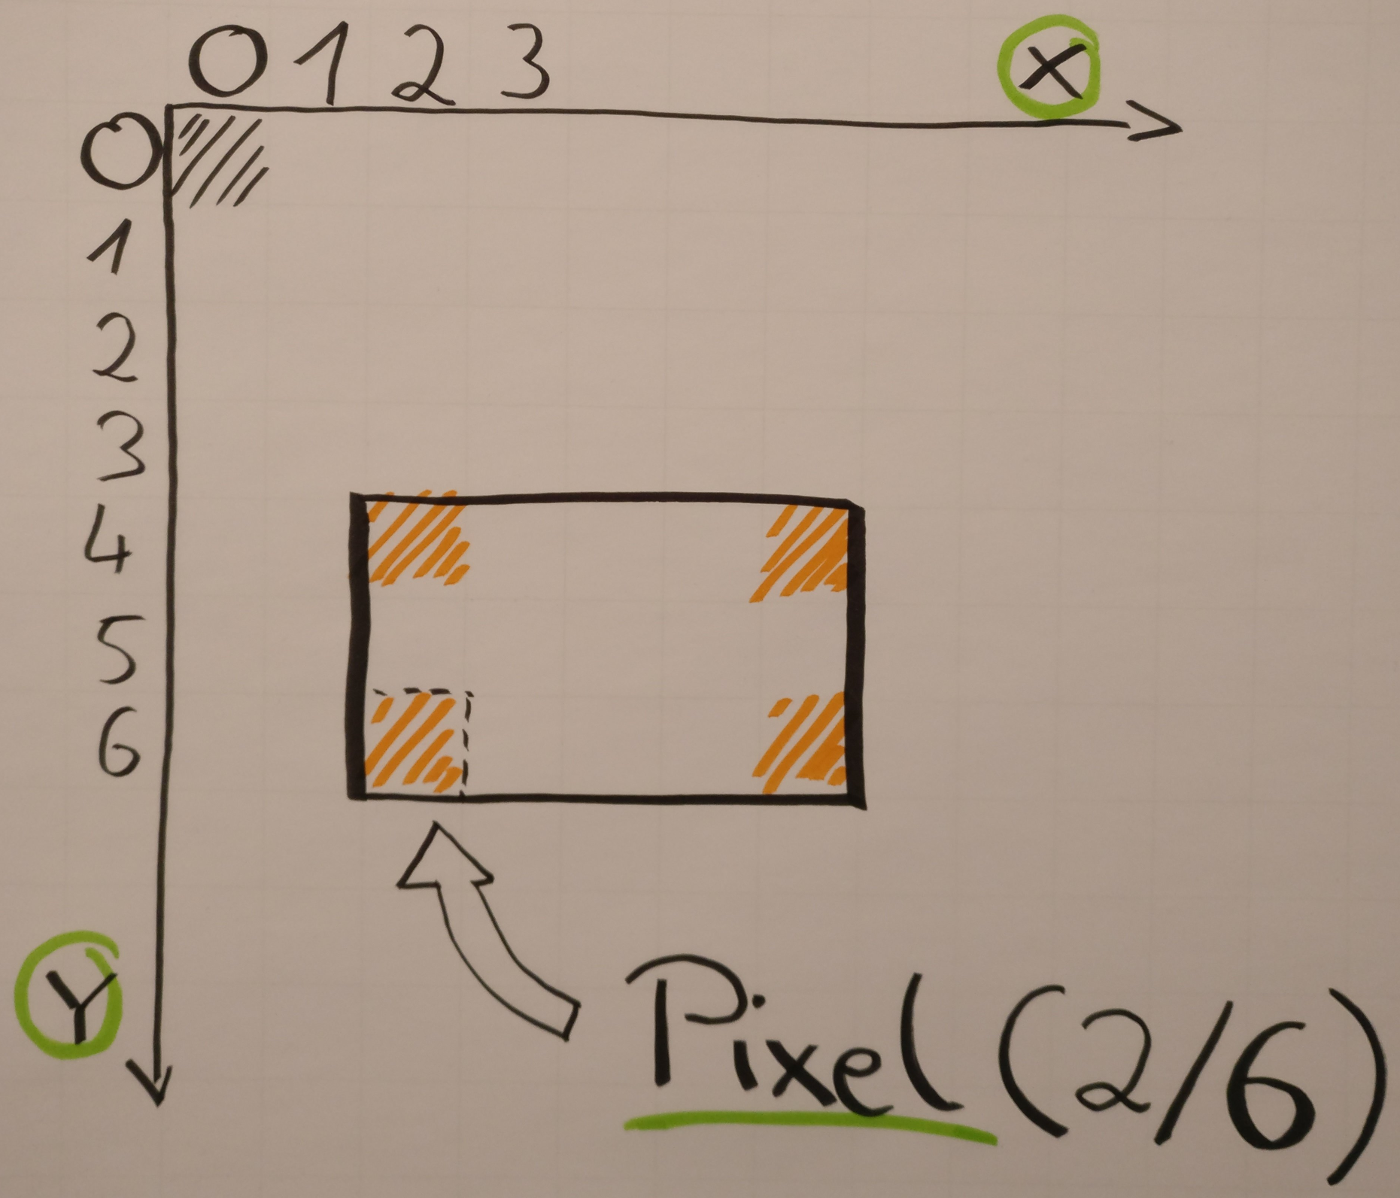 0 1 2 3 X
0
1
2
3
4
5
6
Y
Pixel (2/6)